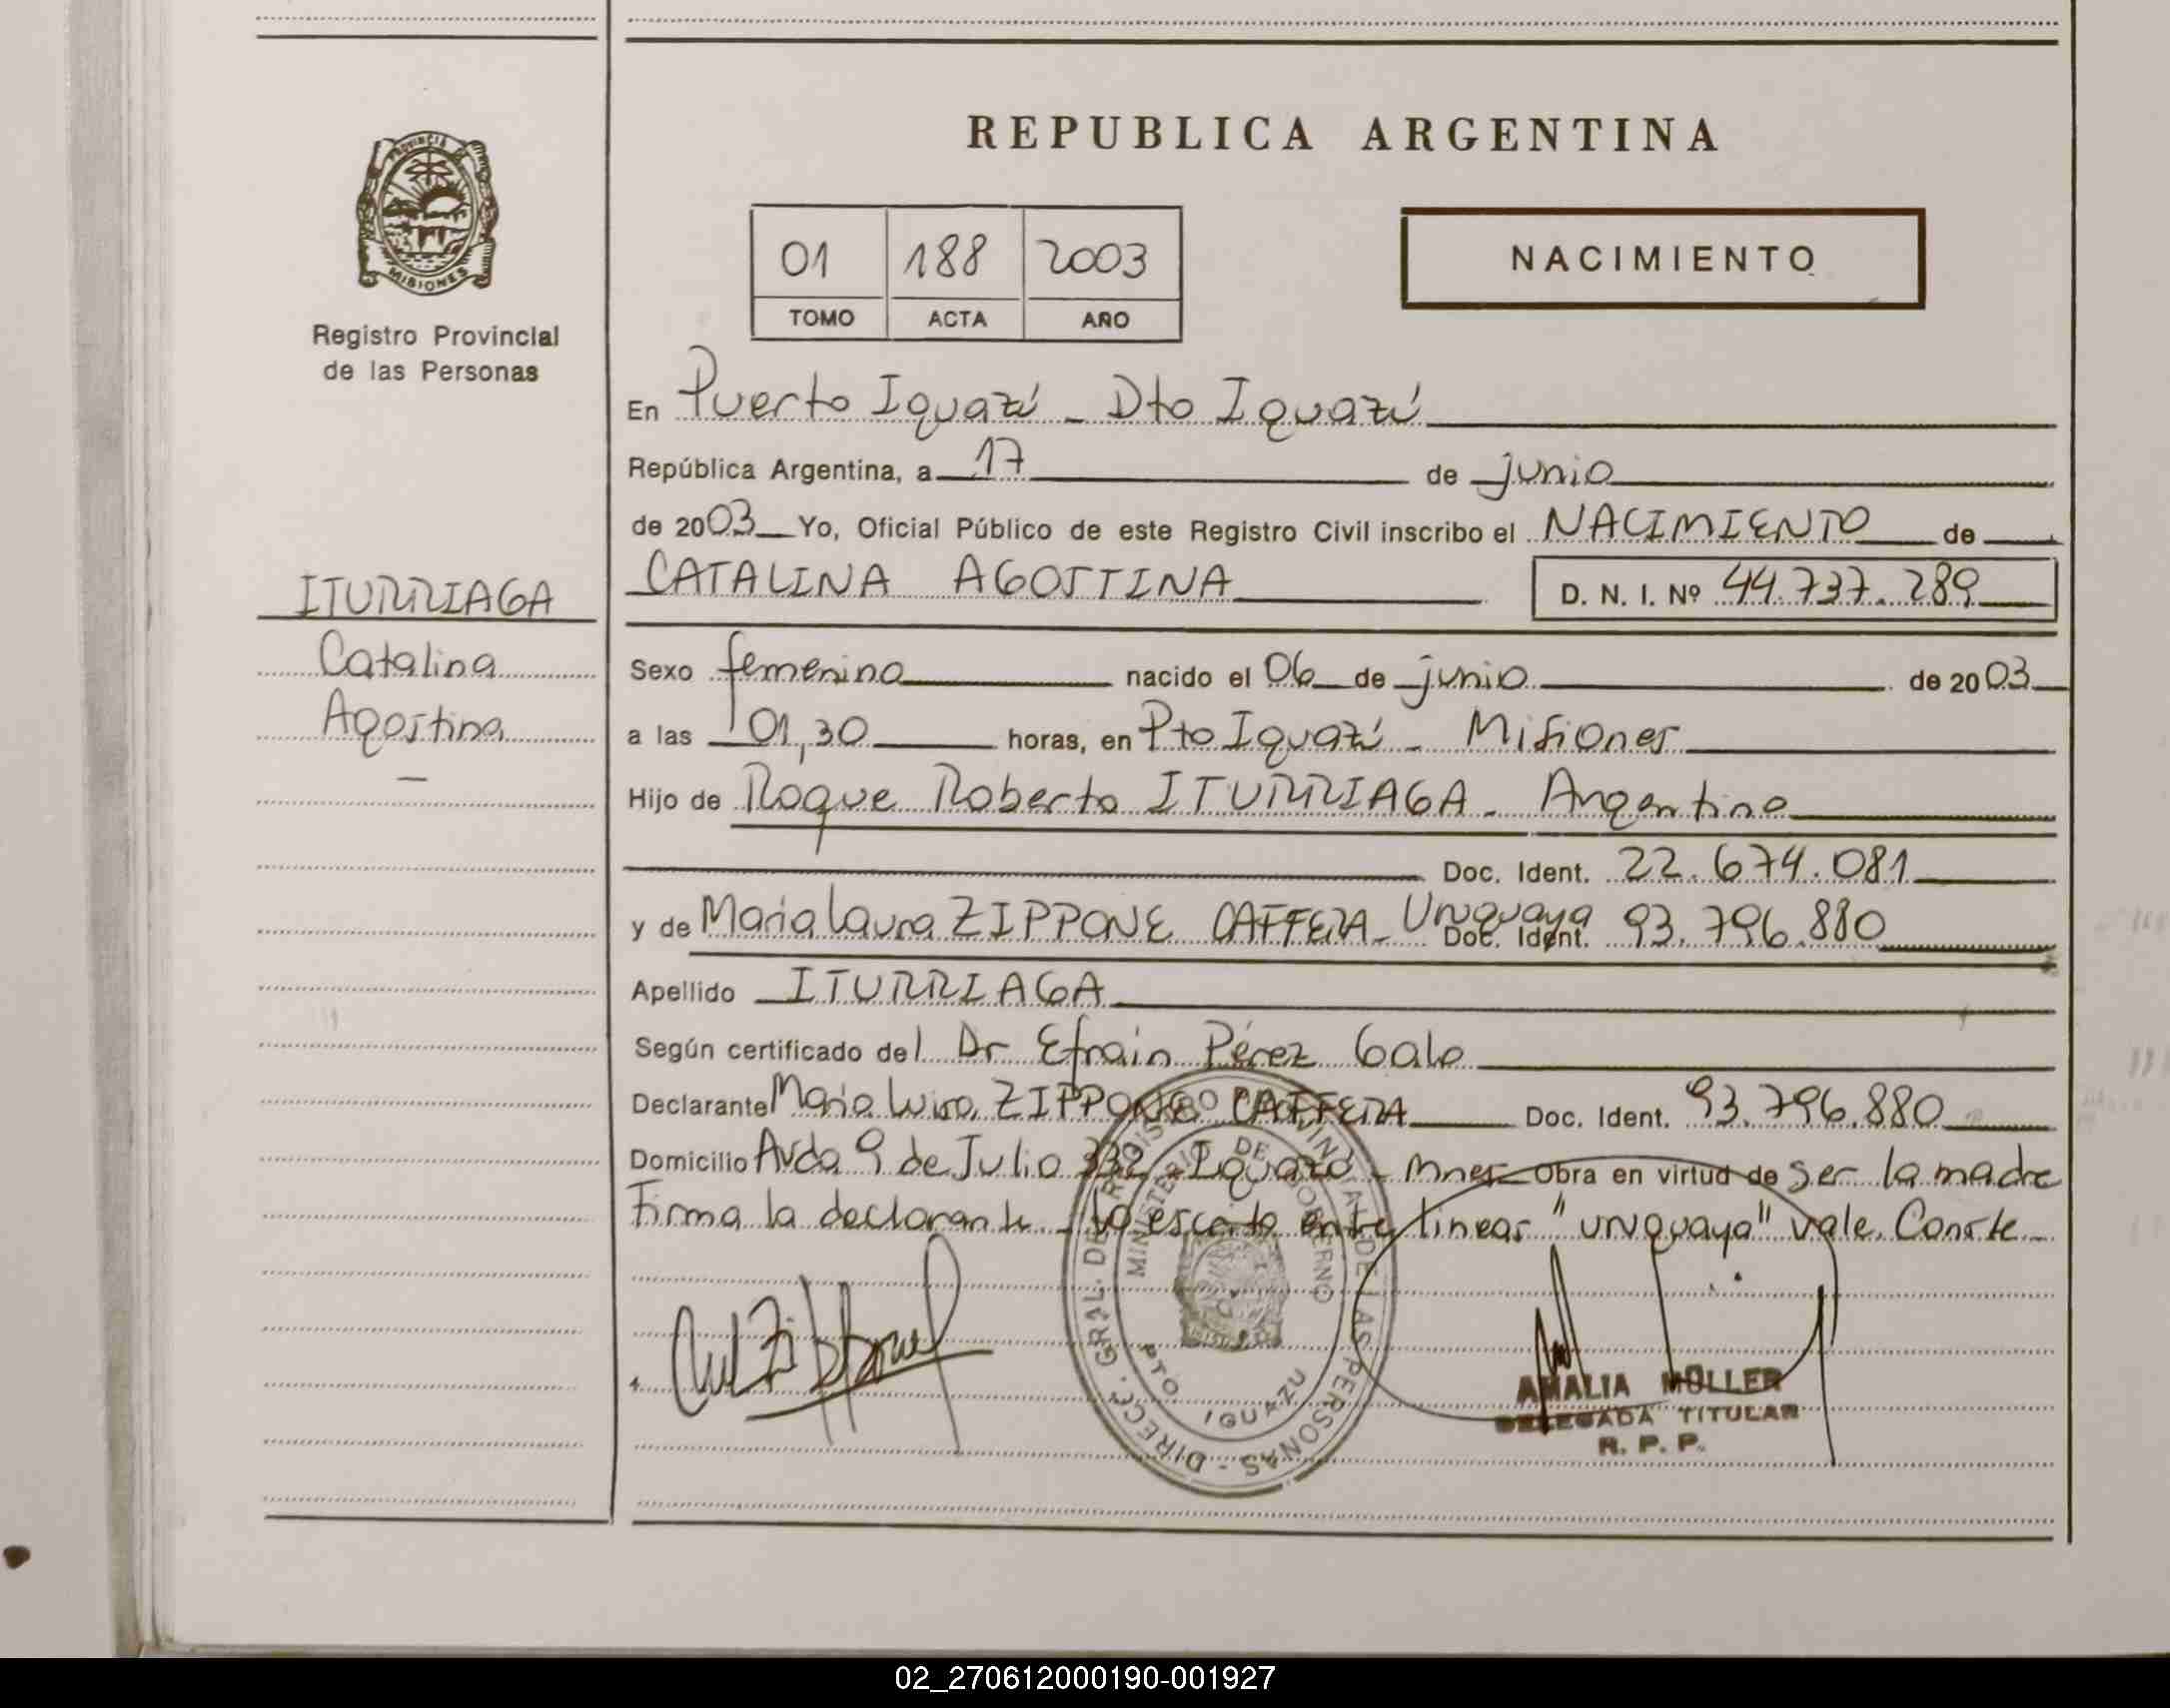 REPUBLICA ARGENTINA
PROVINCIA DE
MISIONES
Registro Provincial
de las Personas
01 188 2003
TOMO ACTA AÑO
NACIMIENTO
En Puerto Iguazú - Dto Iguazú
República Argentina, a 17 de junio
de 2003 Yo, Oficial Público de este Registro Civil inscribo el NACIMIENTO de
ITURRIAGA
Catalina
Agostina
CATALINA AGOSTINA D. N. I. Nº 44.737.289
Sexo femenino nacido el 06 de junio de 2003
a las 01,30 horas, en Pto Iguazú - Misiones
Hijo de Roque Roberto ITURRIAGA - Argentino
Doc. Ident. 22.674.081
y de Maria Laura ZIPPONE CAFFERA - Uruguaya Doc. Ident. 93.796.880
Apellido ITURRIAGA
Según certificado del Dr Efrain Pérez Galo
Declarante Maria ZIPPONE CAFFERA Doc. Ident. 93.796.880
Domicilio Avda 9 de Julio 332 - Iguazú - Mnes Obra en virtud de ser la madre
Firma la declarante - Lo escrito entre lineas "uruguaya" vale. Conste -
DIRECC. GRAL. DE REGISTRO PROVINCIAL DE LAS PERSONAS -
MINISTERIO DE GOBIERNO
PTO IGUAZU
AMALIA MOLLER
DELEGADA TITULAR
R. P. P.
02_270612000190-001927